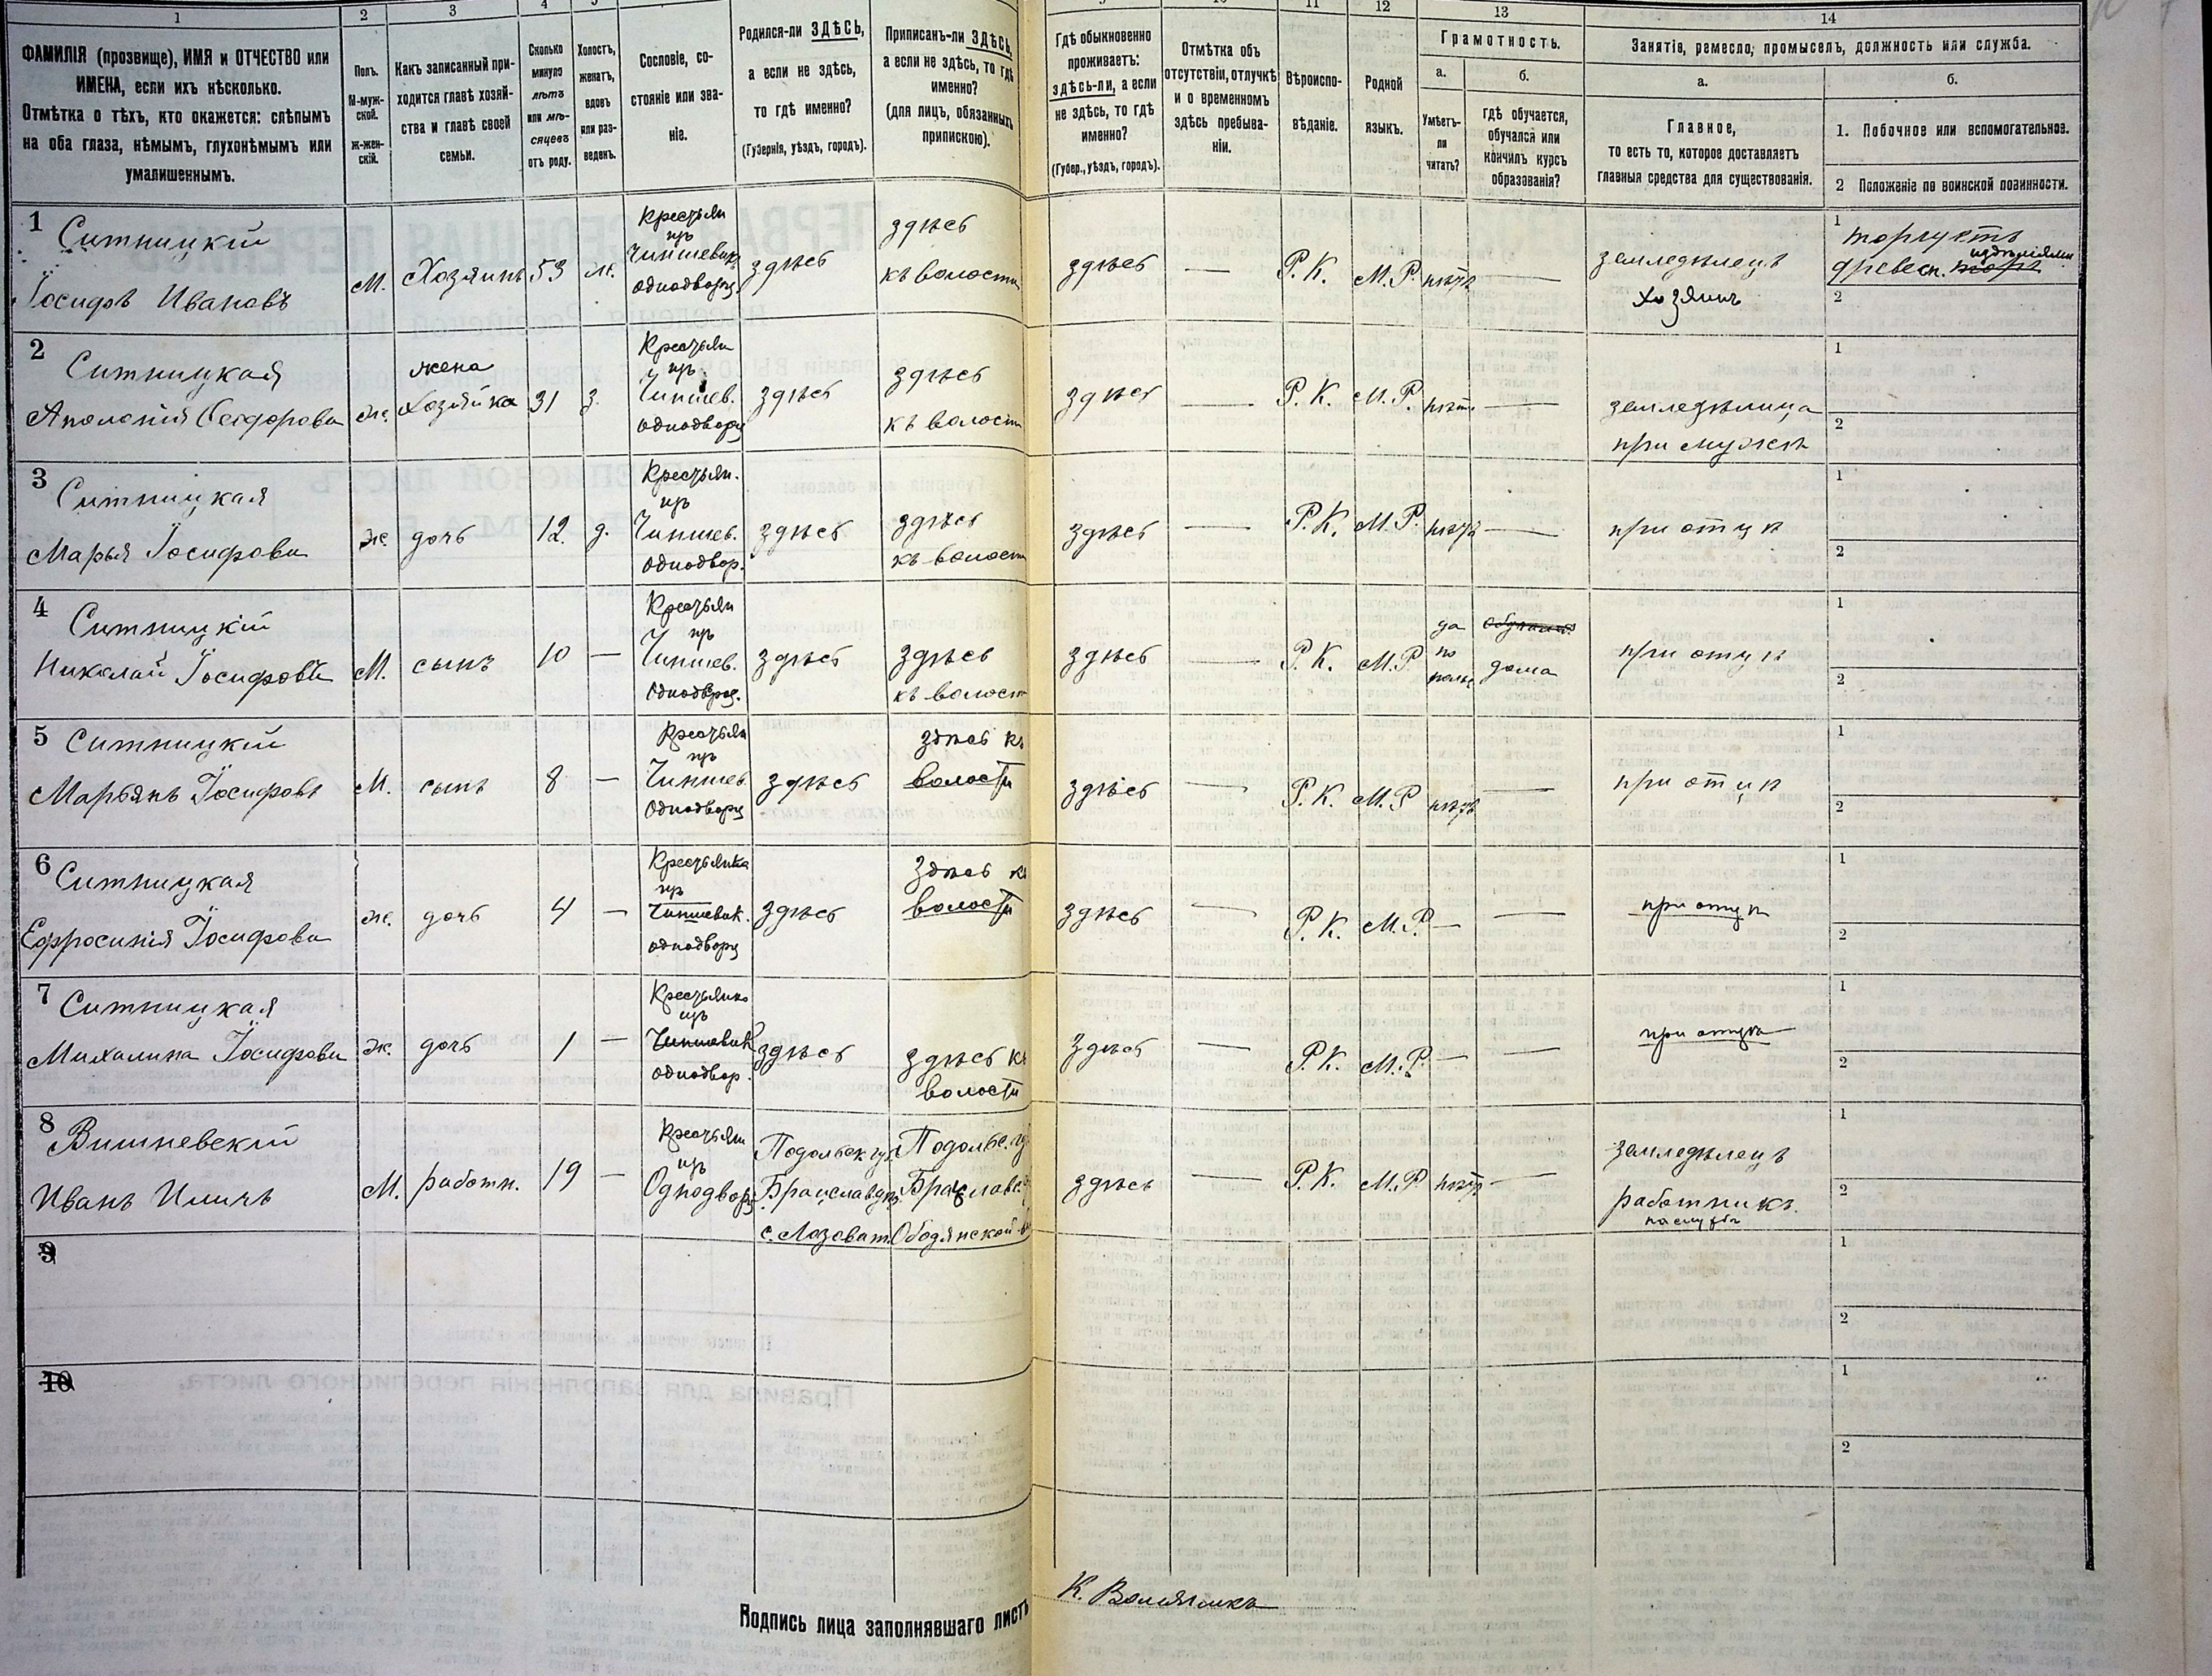 1 2 3 4 11 12 13 14
ФАМИЛІЯ (прозвище), ИМЯ и ОТЧЕСТВО или
ИМЕНА, если ихъ нѣсколько.
Отмѣтка о тѣхъ, кто окажется: слѣпымъ
на оба глаза, нѣмымъ, глухонѣмымъ или
умалишеннымъ.
Полъ.
М-муж-
ской.
Ж-жен-
скій.
Какъ записанный при-
ходится главѣ хозяй-
ства и главѣ своей
семьи.
Сколько
минуло
лѣтъ
или мѣ-
сяцевъ
отъ роду.
Холостъ,
женатъ,
вдовъ
или раз-
веденъ.
Сословіе, со-
стояніе или зва-
ніе.
Родился-ли ЗДѢСЬ,
а если не здѣсь,
то гдѣ именно?
(Губернія, уѣздъ, городъ).
Приписанъ-ли ЗДѢСЬ,
а если не здѣсь, то гдѣ
именно?
(для лицъ, обязанныхъ
припискою).
Гдѣ обыкновенно
проживаетъ:
здѣсь-ли, а если
не здѣсь, то гдѣ
именно?
(Губер., уѣздъ, городъ).
Отмѣтка объ
отсутствіи, отлучкѣ
и о временномъ
здѣсь пребыва-
ніи.
Вѣроиспо-
вѣданіе.
Родной
языкъ.
Грамотность.
а.
Умѣетъ-
ли
читать?
б.
Гдѣ обучается,
обучался или
кончилъ курсъ
образованія?
Занятіе, ремесло, промыселъ, должность или служба.
а.
Главное,
то есть то, которое доставляетъ
главныя средства для существованія.
б.
1. Побочное или вспомогательное.
2 Положеніе по воинской повинности.
1 Ситницкій
Іосифъ Ивановъ
М. Хозяинъ 53 ж.
Крестьян
изъ
Чиншевик.
однодворц.
здѣсь
здѣсь
къ волости
здѣсь — Р. К. М. Р. нѣтъ —
земледѣлецъ
хозяинъ
1 торгуетъ
древесн. издѣліями
2
2 Ситницкая
Аполонія Феодорова
ж.
жена
хозяйка
31 з.
Крестьян
изъ
Чиншев.
однодворц
здѣсь
здѣсь
къ волости
здѣсь — Р. К. М. Р. нѣтъ —
земледѣлица
при мужѣ
1
2
3 Ситницкая
Марья Іосифова
ж. дочь 12. д.
Крестьян.
изъ
Чиншев.
однодвор.
здѣсь
здѣсь
къ волости
здѣсь — Р. К. М. Р. нѣтъ —
при отцѣ
1
2
4 Ситницкій
Николай Іосифовъ
М. сынъ 10 —
Крестьян
изъ
Чиншев.
однодвор.
здѣсь
здѣсь
къ волости
здѣсь — Р. К. М. Р
да
по
польс
дома
при отцѣ
1
2
5 Ситницкій
Марьянъ Іосифовъ
М. сынъ 8 —
Крестьян
изъ
Чиншев
однодворц
здѣсь
здѣсь къ
волости
здѣсь — Р. К. М. Р нѣтъ —
при отцѣ
1
2
6 Ситницкая
Ефросинія Іосифова
ж. дочь 4 —
Крестьянка
изъ
Чиншевик.
однодворц
здѣсь
здѣсь къ
волости
здѣсь — Р. К. М. Р. — —
при отцѣ
1
2
7 Ситницкая
Михалина Іосифова
ж. дочь 1 —
Крестьянка
изъ
Чиншевик
однодвор.
здѣсь
здѣсь къ
волости
здѣсь — Р. К. М. Р. — —
при отцѣ
1
2
8 Вишневскій
Иванъ Ильичъ
М. работн. 19 —
Крестьян
изъ
Однодвор
Подольск гу.
Брацлавск
с. Лозоват.
Подольс. гу
Брацлавс.
Ободянской
здѣсь — Р. К. М. Р. нѣтъ —
земледѣлецъ
работникъ.
пастухъ
1
2
9
1
2
10
1
2
Подпись лица заполнявшаго листъ